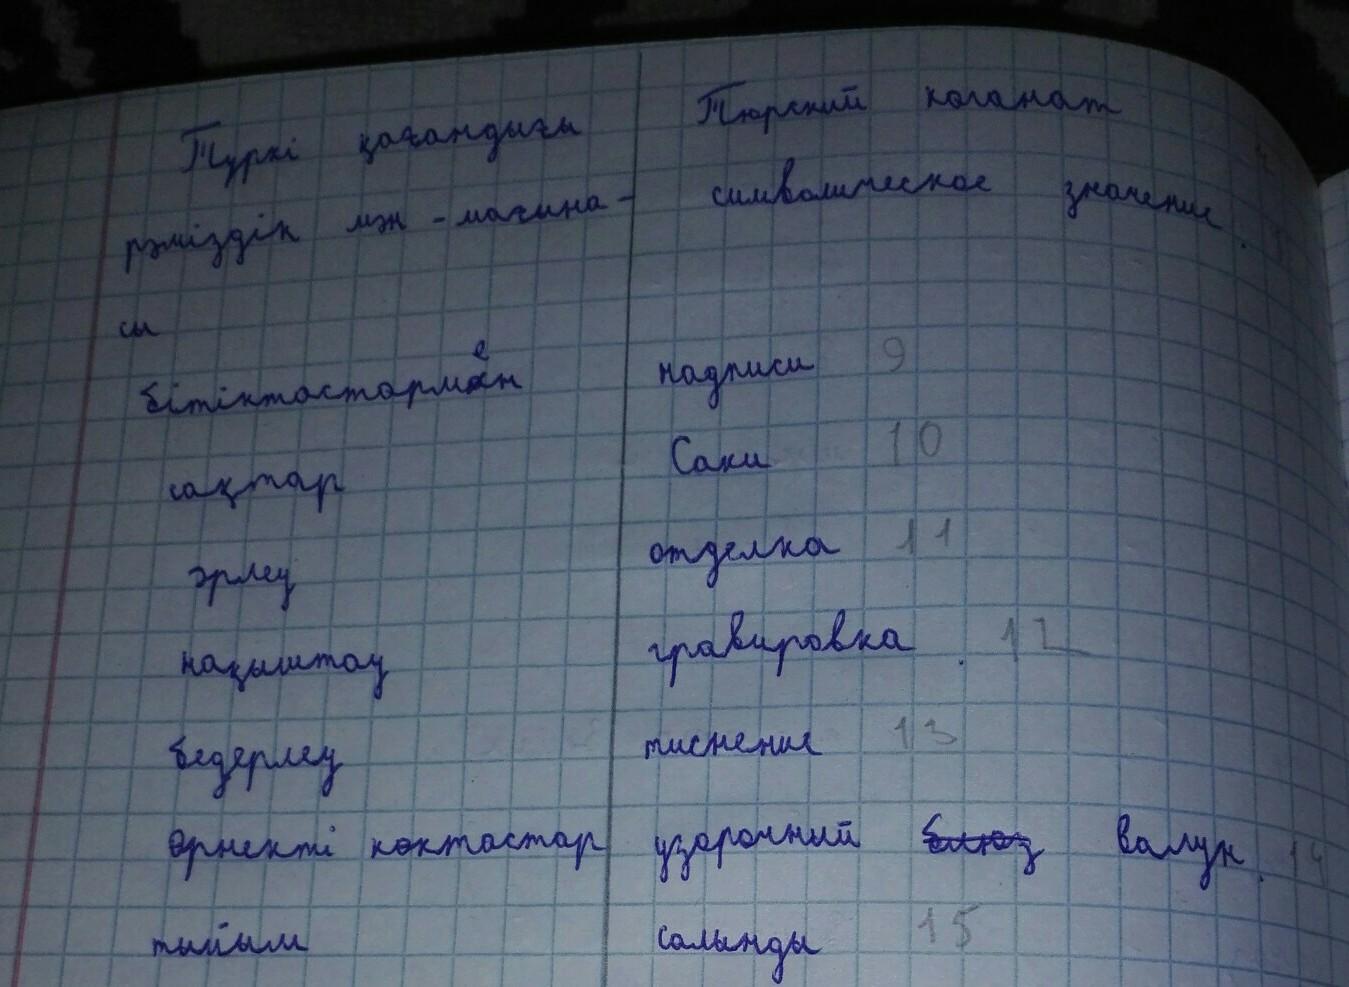 Түркі қағандығы Тюрский каганат
рәміздік мән-мағына- символическое значение.
сы
бітіктастармен надписи 9
сақтар Саки 10
әрлеу отделка 11
нақыштау гравировка 12
бедерлеу тиснение 13
өрнекті көктастар узорочный валун. 14
тыйым салынды 15